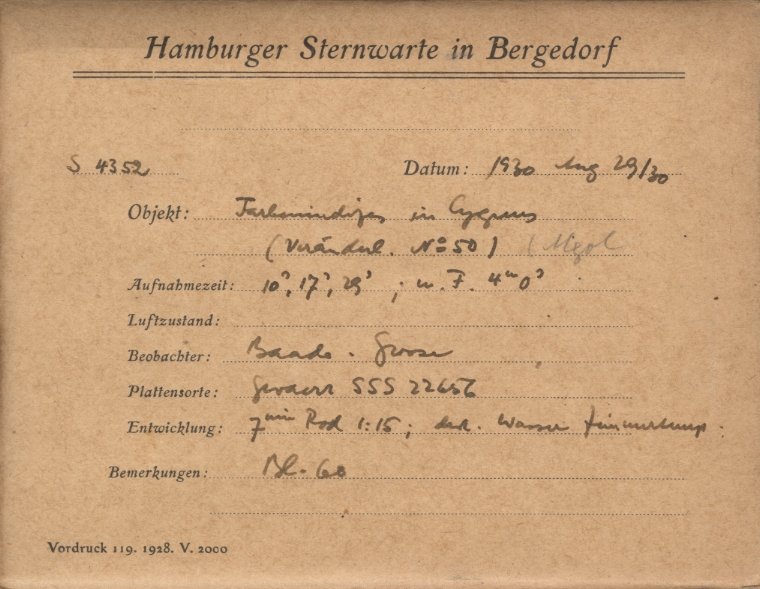 Hamburger Sternwarte in Bergedorf
S 4352 Datum: 1930 Aug 29/30
Objekt: in Cygnus
(Veränderl. No 50)
Aufnahmezeit: 10ˢ, 17ˢ, 29ˢ ; m. F. 4ᵐ 0ˢ
Luftzustand:
Beobachter: Baade.
Plattensorte: Gevaert SSS 22656
Entwicklung: 7 min Rod 1:15; dest. Wasser
Bemerkungen: Bl. 60
Vordruck 119. 1928. V. 2000